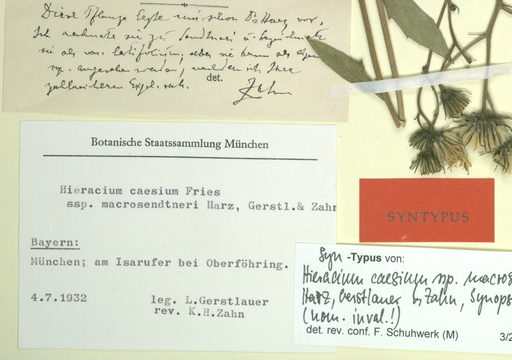 Diese Pflanze legte mir schon Dr Harz vor.
Ich rechnete sie zu Sendtneri u. bezeichnete
sie als var. latifolium, aber sie kann als eigene
ssp. angesehen werden, nachdem ich Ihre
zahlreicheren Expl. sah.
det. Zahn
Botanische Staatssammlung München
Hieracium caesium Fries
ssp. macrosendtneri Harz, Gerstl.& Zahn
Bayern:
München; am Isarufer bei Oberföhring.
4.7.1932 leg. L.Gerstlauer
rev. K.H.Zahn
SYNTYPUS
Syn -Typus von:
Hieracium caesium ssp. macros
Harz, Gerstlauer & Zahn, Synops
(nom. inval.!)
det. rev. conf. F. Schuhwerk (M) 3/2